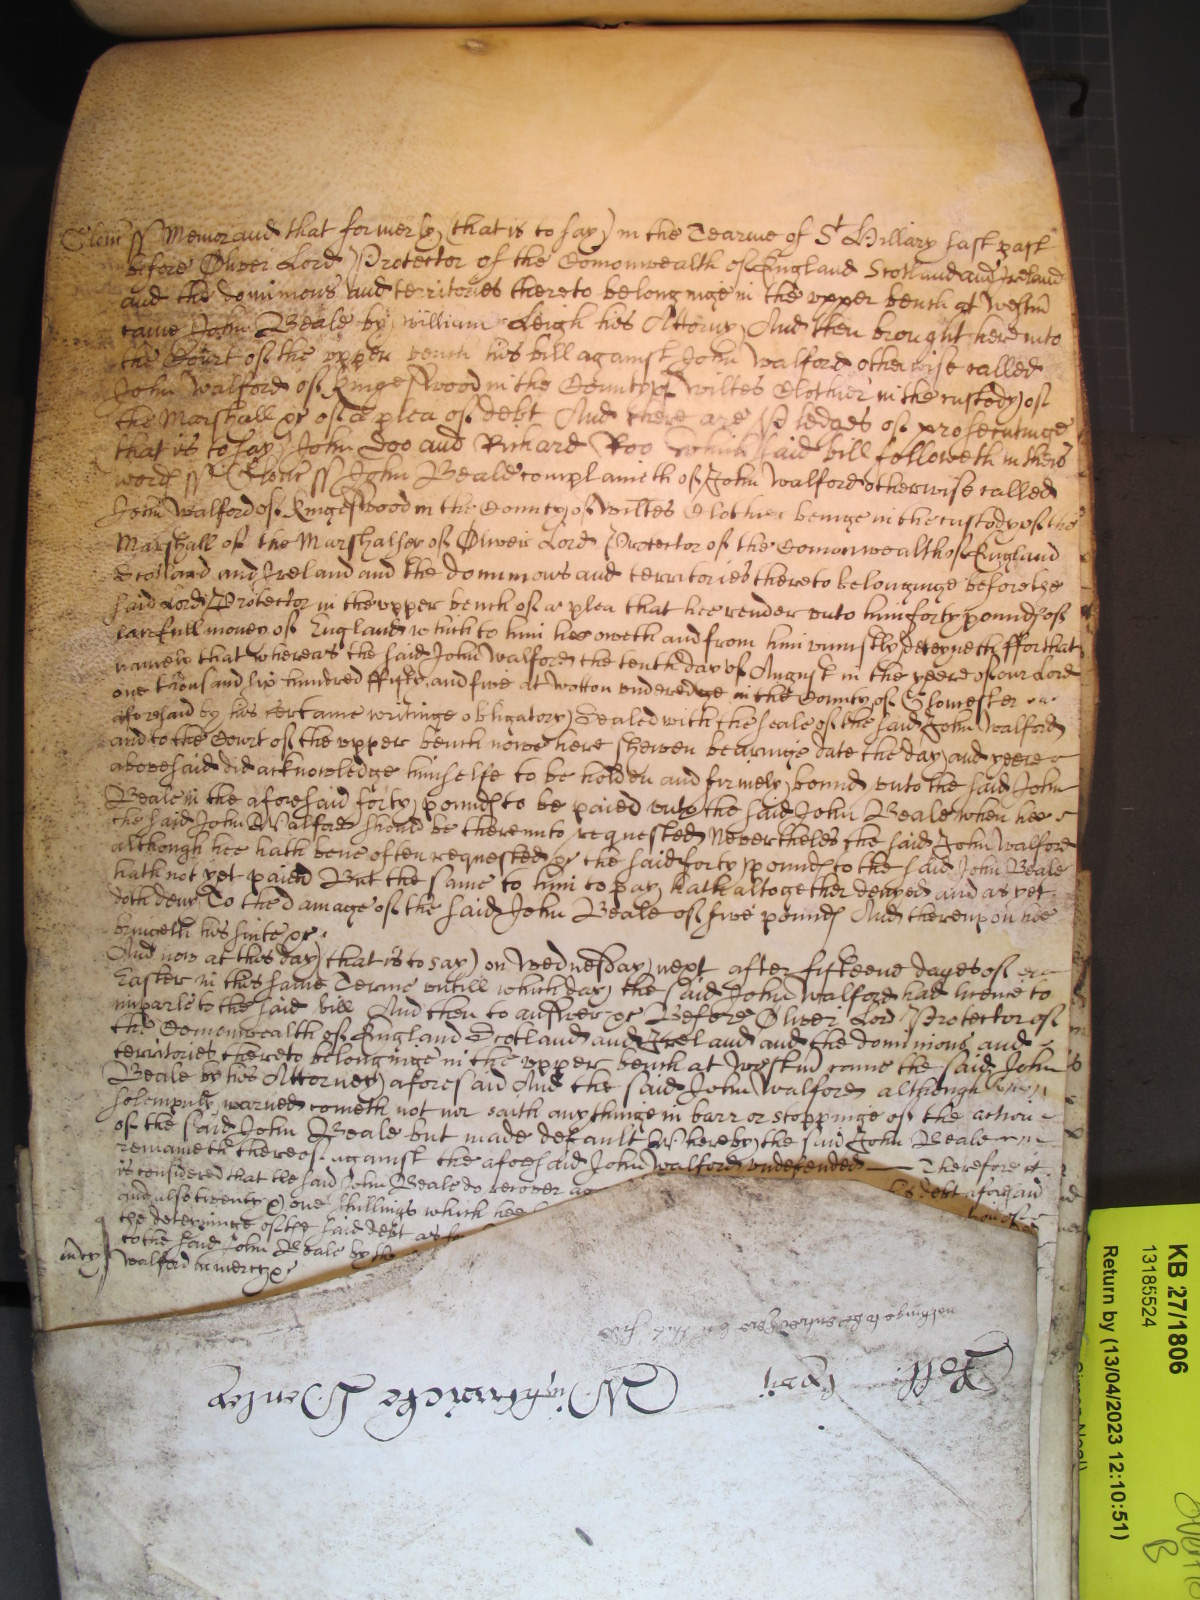 Glouc ss Memorand that formerly (that is to say) in the Tearme of St Hillary last past
before Oliver Lord Protector of the Comonwealth of England Scotland and Ireland
and the dominions and territories thereto belonginge in the upper bench at Westm
came John Beale by William Leigh his Attorny And then brought here into
the Court of the upper bench his bill against John Walford otherwise called
John Walford of Kingeswood in the County of Wiltes Clothier in the custody of
the Marshall &c of a plea of debt And there are Pledges of prosecutinge
that is to say John Doo and Richard Roo which said bill followeth in theis
words ss Glouc ss John Beale complaineth of John Walford otherwise called
John Walford of Kingeswood in the County of Wiltes Clothier beinge in the custody of the
Marshall of the Marshalsey of Oliver Lord Protector of the Comonwealth of England
Scotland and Ireland and the dominions and territories thereto belonginge before the
said Lord Protector in the upper bench of a plea that hee render unto him forty pounds of
lawfull money of England which to him hee oweth and from him uniustly deteyneth ffor that
namely that whereas the said John Walford the tenth day of August in the yeere of our Lord
one thousand six hundred ffifty and five at Wotton underedge in the County of Glouester
aforesaid by his certaine writinge obligatory Sealed with the seale of the said John Walford
and to the Court of the upper bench nowe here shewen bearinge date the day and yeere
abovesaid did acknowledge himselfe to be holden and firmely bound unto the said John
Beale in the aforesaid forty pounds to be paied unto the said John Beale when hee
the said John Walford should be thereunto requested Nevertheles the said John Walford
although hee hath bene often requested &c the said forty pounds to the said John Beale
hath not yet paied But the same to him to pay hath altogether denyed and as yet
doth deny To the damage of the said John Beale of five pounds And thereupon hee
bringeth his suite &c
And now at this day (that is to say) on Wednesday next after fifteene dayes of
Easter in this same Terme untill which day the said John Walford had licence to
imparle to the said bill And then to answer &c Before Oliver Lord Protector of
the Comonwealth of England Scotland and Ireland and the dominions and
territories thereto belonginge in the upper bench at Westm came the said John
Beale by his Attorney aforesaid And the said John Walford although
solempnly warned cometh not nor saith any thinge in barr or stoppinge of the action
of the said John Beale but made default Whereby the said John Beale
remaineth thereof against the aforesaid John Walford undefended Therefore it
is considered that the said John Beale do recover his debt aforesaid
and also twenty one shillings which hee
the deteininge of the said debt as
to the said John Beale by the
in mcy Walford in mercy &c
nothinge to be entred here on this side
Roll
Wightwicke Henley
KB 27/1806
13185524
Return by (13/04/2023 12:10:51)